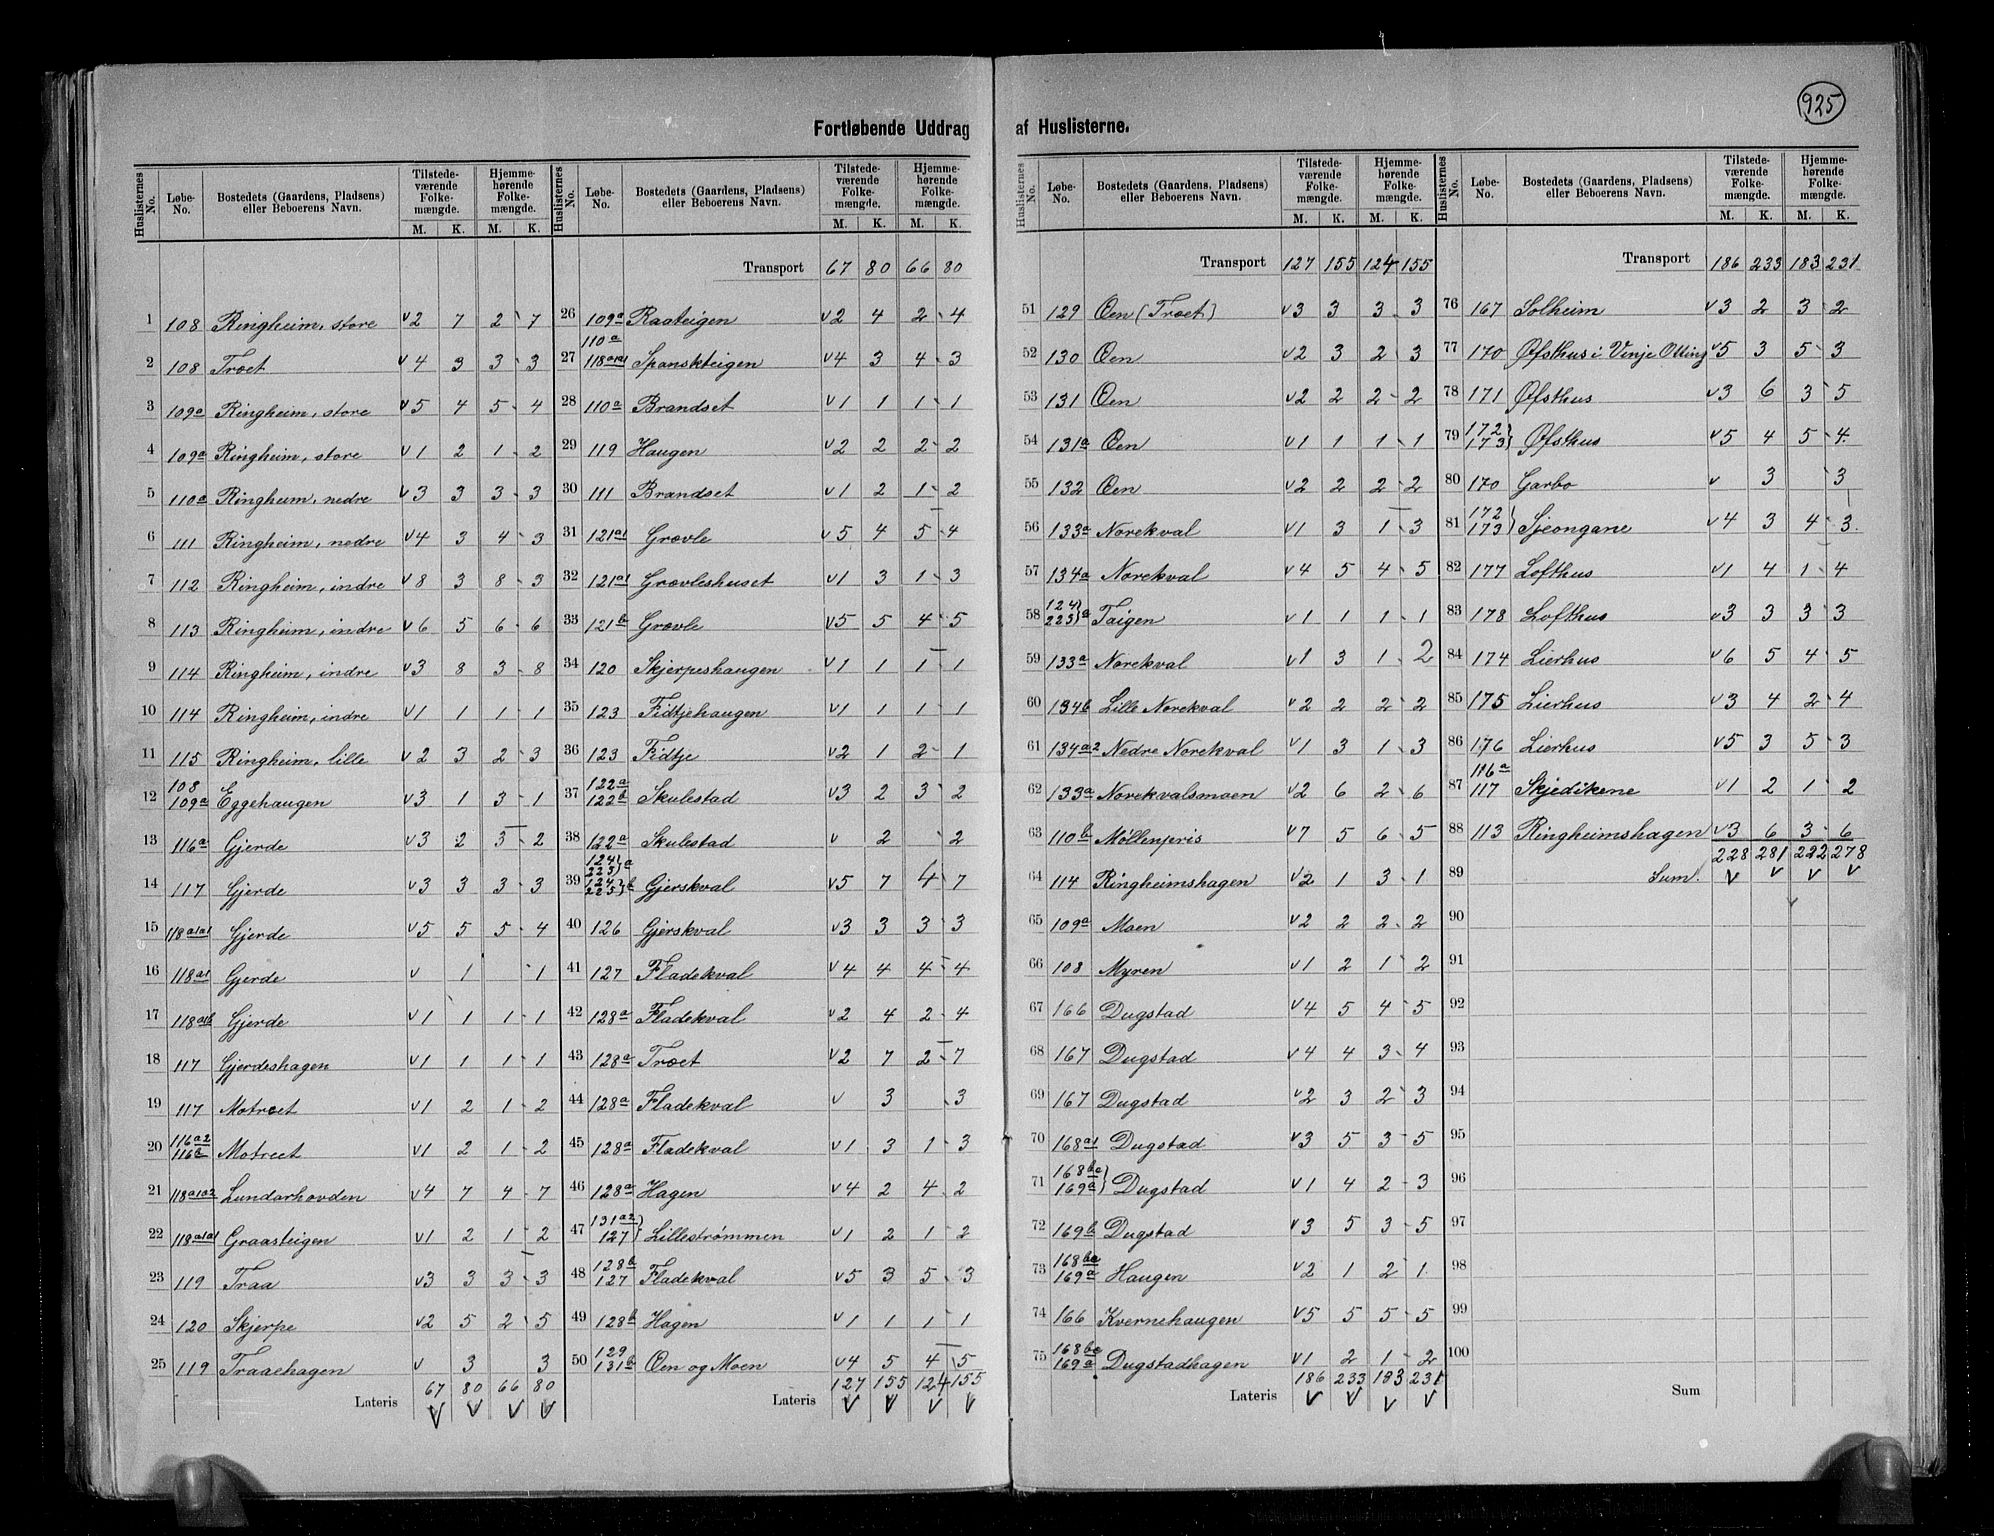 925
Fortløbende Uddrag af Huslisterne.
Huslisternes No. Løbe-No. Bostedets (Gaardens, Pladsens) eller Beboerens Navn. Tilstedeværende Folkemængde. Hjemmehørende Folkemængde.
M. K. M. K.
1 108 Ringheim, store v2 7 2 7
2 108 Trœt v4 3 3 3
3 109a Ringheim, store v5 4 5 4
4 109a Ringheim, store v1 2 1 2
5 110a Ringheim, nedre v3 3 3 3
6 111 Ringheim, nedre v4 3 4 3
7 112 Ringheim, indre v8 3 8 3
8 113 Ringheim, indre v6 5 6 6
9 114 Ringheim, indre v3 8 3 8
10 114 Ringheim, indre v1 1 1 1
11 115 Ringheim, lille v2 3 2 3
12 108 109a Eggehaugen v3 1 3 1
13 116a Gjerde v3 2 3 2
14 117 Gjerde v3 3 3 3
15 118a1a1 Gjerde v5 5 5 4
16 118a1 Gjerde v 1 1
17 118a1b Gjerde v1 1 1 1
18 117 Gjerdeshagen v1 1 1 1
19 117 Motrœt v1 2 1 2
20 116a2 116a Motrœt v1 2 1 2
21 118a1a2 Lundarhovden v4 7 4 7
22 118a1a1 Graasteigen v1 2 1 2
23 119 Traa v3 3 3 3
24 120 Skjerpe v2 5 2 5
25 119 Traaehagen v 3 3
Lateris 67 80 66 80
Huslisternes No. Løbe-No. Bostedets (Gaardens, Pladsens) eller Beboerens Navn. Tilstedeværende Folkemængde. Hjemmehørende Folkemængde.
M. K. M. K.
Transport 67 80 66 80
26 109a 110a Raateigen v2 4 2 4
27 118a1a1 Spanskteigen v4 3 4 3
28 110a Brandset v1 1 1 1
29 119 Haugen v2 2 2 2
30 111 Brandset v1 2 1 2
31 121a1 Grœvle v5 4 5 4
32 121a1 Grœvleshuset v1 3 1 3
33 121b Grœvle v5 5 4 5
34 120 Skjerpeshaugen v1 1 1 1
35 123 Fidtjehaugen v1 1 1 1
36 123 Fidtje v2 1 2 1
37 122a 122b Skulestad v3 2 3 2
38 122a Skulestad v 2 2
39 124 223}a 124 225}b Gjerskval v5 7 4 7
40 126 Gjerskval v3 3 3 3
41 127 Fladekval v4 4 4 4
42 128a Fladekval v2 4 2 4
43 128a Trœt v2 7 2 7
44 128a Fladekval v 3 3
45 128a Fladekval v1 3 1 3
46 128a Hagen v4 2 4 2
47 131a2 127} Lillestrømmen v1 2 1 2
48 128b 127 Fladekval v5 3 5 3
49 128b Hagen v1 1 1 1
50 129 131b Øen og Moen v4 5 4 5
Lateris 127 155 124 155
Huslisternes No. Løbe-No. Bostedets (Gaardens, Pladsens) eller Beboerens Navn. Tilstedeværende Folkemængde. Hjemmehørende Folkemængde.
M. K. M. K.
Transport 127 155 124 155
51 129 Øen (Trœt) v3 3 3 3
52 130 Øen v2 3 2 3
53 131 Øen v2 2 2 2
54 131a Øen v1 1 1 1
55 132 Øen v2 2 2 2
56 133a Norekval v1 3 1 3
57 134a Norekval v4 5 4 5
58 124 223}a Taigen v1 1 1 1
59 133a Norekval v1 3 1 2
60 134b Lille Norekval v2 2 2 2
61 134a2 Nedre Norekval v1 3 1 3
62 133a Norekvalsmoen v2 6 2 6
63 110b Møllenjeris v7 5 6 5
64 114 Ringheimshagen v2 1 3 1
65 109a Moen v2 2 2 2
66 108 Myren v1 2 1 2
67 166 Dugstad v4 5 4 5
68 167 Dugstad v4 4 3 4
69 167 Dugstad v2 3 2 3
70 168a1 Dugstad v3 5 3 5
71 168ba 169a} Dugstad v1 4 2 3
72 169b Dugstad v3 5 3 5
73 168ba 169a Haugen v2 1 2 1
74 166 Kvernehaugen v5 5 5 5
75 168ba 169a Dugstadhagen v1 2 1 2
Lateris 186 233 183 231
Huslisternes No. Løbe-No. Bostedets (Gaardens, Pladsens) eller Beboerens Navn. Tilstedeværende Folkemængde. Hjemmehørende Folkemængde.
M. K. M. K.
Transport 186 233 183 231
76 167 Solheim v3 2 3 2
77 170 Øfsthus i Vinje Otting v5 3 5 3
78 171 Øfsthus v3 6 3 5
79 172 173} Øfsthus v5 4 5 4
80 170 Garbo v 3 3
81 172 173} Sjeongane v4 3 4 3
82 177 Lofthus v1 4 1 4
83 178 Lofthus v3 3 3 3
84 174 Lierhus v6 5 4 5
85 175 Lierhus v3 4 2 4
86 176 Lierhus v5 3 5 3
87 116a 117 Skjedikene v1 2 1 2
88 113 Ringheimshagen v3 6 3 6
89 Sum. 228 281 222 278
90
91
92
93
94
95
96
97
98
99
100
Sum